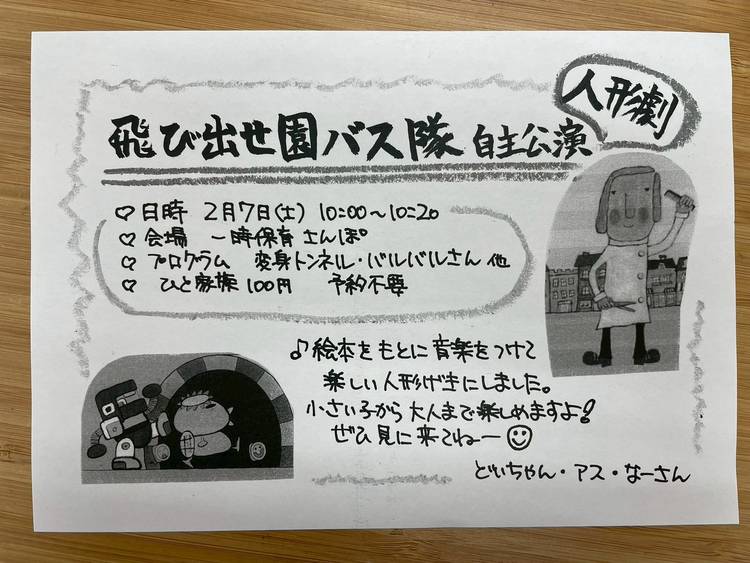 人形劇
飛び出せ園バス隊 自主公演
♡ 日時 2月7日(土) 10:00〜10:20
♡ 会場 一時保育 さんぽ
♡ プログラム 変身トンネル・バルバルさん 他
♡ ひと家族 100円 予約不要
♪ 絵本をもとに音楽をつけて
楽しい人形げきにしました。
小さい子から大人まで楽しめますよ!
ぜひ見に来てねー ☺
どいちゃん・アス・なーさん